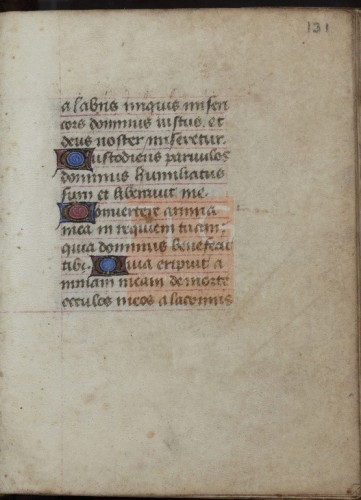 131
a labiis iniquis miseri
cors dominus iustus. et
deus noster miseretur.
Custodiens paruulos
dominus humiliatus
sum et liberauit me.
Conuertere anima
mea in requiem tuam.
quia dominus benefecit
tibi. Quia eripuit a
nimam meam de morte
occulos meos a lacrimis